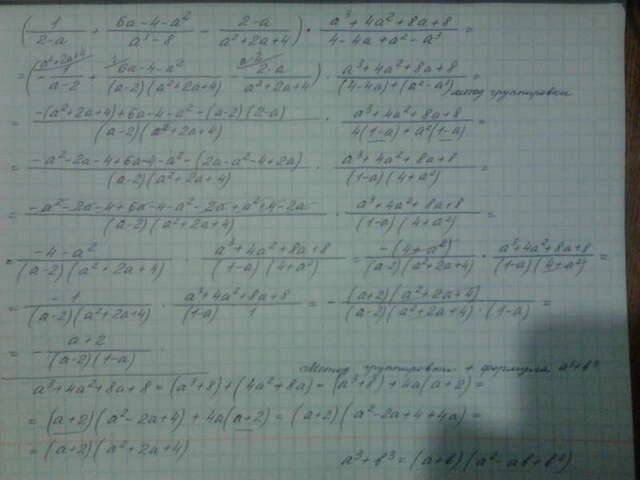 (1/(2-a) + (6a-4-a²)/(a³-8) - (2-a)/(a²+2a+4)) · (a³+4a²+8a+8)/(4-4a+a²-a³) =
= (-1/(a-2) + (6a-4-a²)/((a-2)(a²+2a+4)) - (2-a)/(a²+2a+4)) · (a³+4a²+8a+8)/((4-4a)+(a²-a³)) =
метод группировки
= (-(a²+2a+4)+6a-4-a²-(a-2)(2-a))/((a-2)(a²+2a+4)) · (a³+4a²+8a+8)/(4(1-a)+a²(1-a)) =
= (-a²-2a-4+6a-4-a²-(2a-a²-4+2a))/((a-2)(a²+2a+4)) · (a³+4a²+8a+8)/((1-a)(4+a²)) =
= (-a²-2a-4+6a-4-a²-2a+a²+4-2a)/((a-2)(a²+2a+4)) · (a³+4a²+8a+8)/((1-a)(4+a²)) =
= (-4-a²)/((a-2)(a²+2a+4)) · (a³+4a²+8a+8)/((1-a)(4+a²)) = -(4+a²)/((a-2)(a²+2a+4)) · (a³+4a²+8a+8)/((1-a)(4+a²)) =
= -1/((a-2)(a²+2a+4)) · (a³+4a²+8a+8)/((1-a) 1) = -((a+2)(a²+2a+4))/((a-2)(a²+2a+4)·(1-a)) =
= -(a+2)/((a-2)(1-a)).
Метод группировки + формула a³+b³
a³+4a²+8a+8 = (a³+8)+(4a²+8a) = (a³+8)+4a(a+2) =
= (a+2)(a²-2a+4)+4a(a+2) = (a+2)(a²-2a+4+4a) =
= (a+2)(a²+2a+4)
a³+b³=(a+b)(a²-ab+b²)